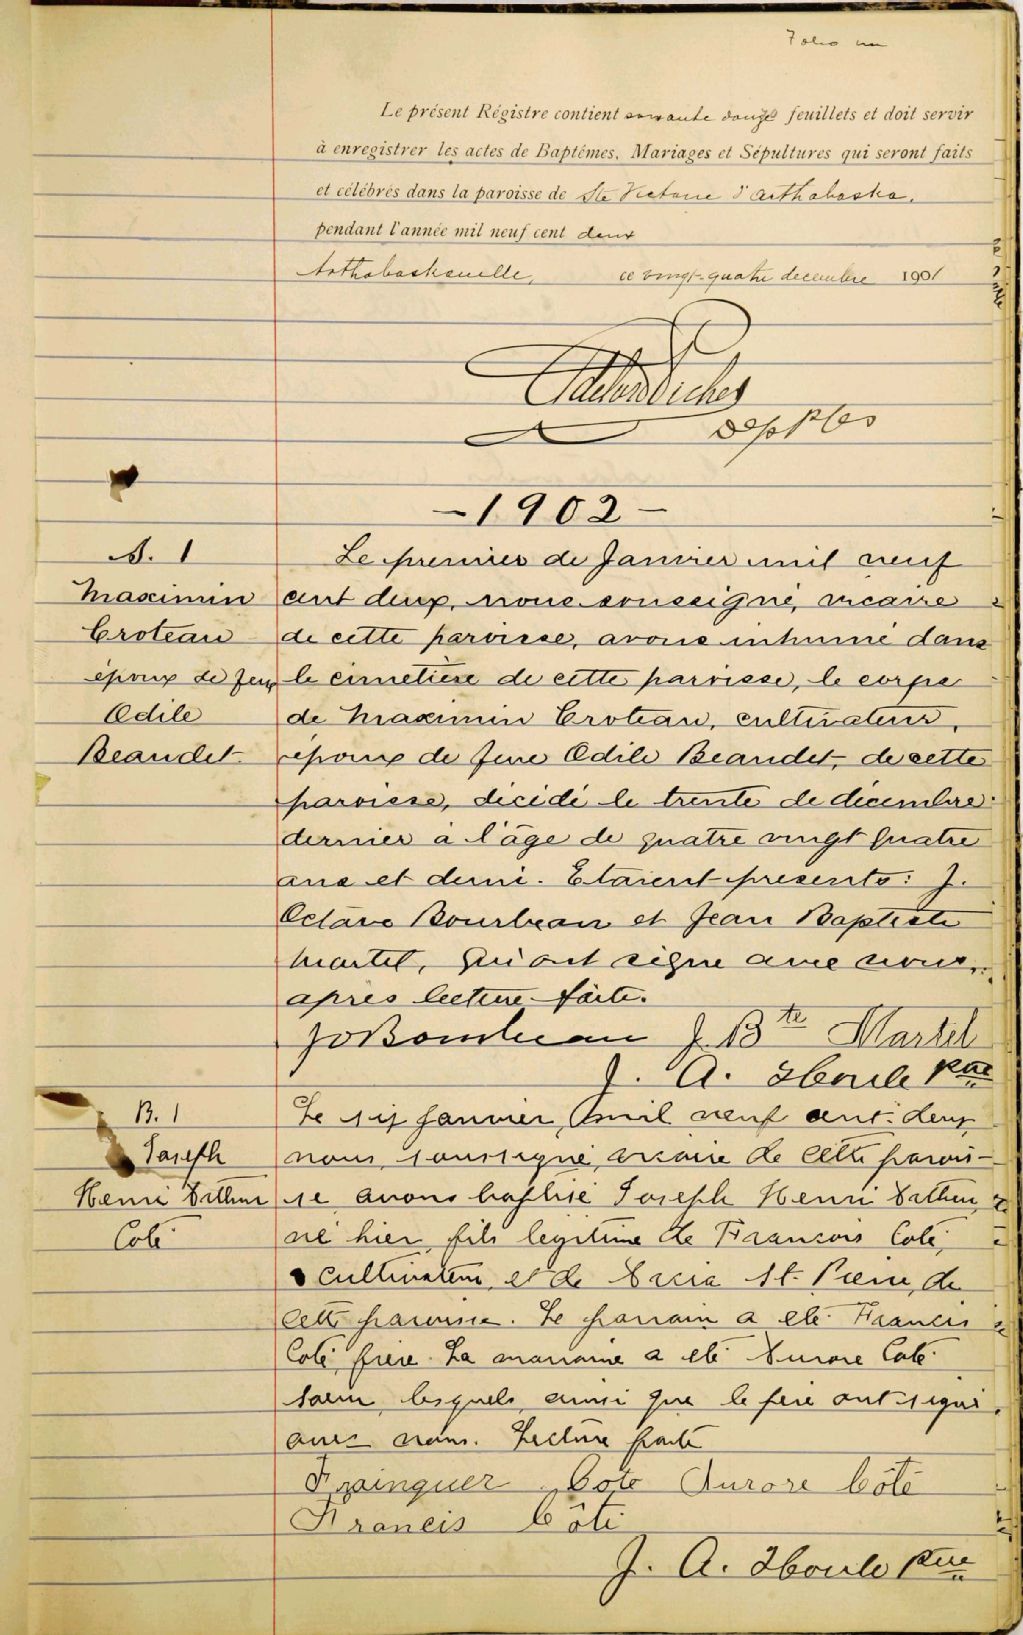 Folio un
Le présent Régistre contient soixante douze feuillets et doit servir
à enregistrer les actes de Baptêmes, Mariages et Sépultures qui seront faits
et célébrés dans la paroisse de Ste Victoire d'Arthabaska,
pendant l'année mil neuf cent deux
Arthabaskaville, ce vingt-quatre decembre 1901
- 1902 -
S. 1
Maximin
Croteau
époux de feue
Odile
Beaudet
Le premier de Janvier mil neuf
cent deux, nous soussigné, vicaire
de cette paroisse, avons inhumé dans
le cimetière de cette paroisse, le corps
de Maximin Croteau, cultivateur,
époux de feue Odile Beaudet, de cette
paroisse, décédé le trente de décembre
dernier à l'âge de quatre vingt quatre
ans et demi. Etaient présents: J.
Octave Bourbeau et Jean Baptiste
Martel, qui ont signé avec nous,
après lecture faite.
JOBourbeau J. Bte Martel
J. A. Houle Ptre
B. 1
Joseph
Henri Arthur
Coté
Le six janvier, mil neuf cent-deux,
nous, soussigné, vicaire de cette parois-
se avons baptisé Joseph Henri Arthur,
né hier, fils legitime de Francois Coté,
cultivateur, et de St-Pierre, de
cette paroisse. Le parrain a eté Francis
Coté, frère. La marraine a eté Aurore Coté
soeur, lesquels, ainsi que le père ont signé
avec nous. Lecture faite
Coté Aurore Côté
Francis Côté
J. A. Houle Ptre